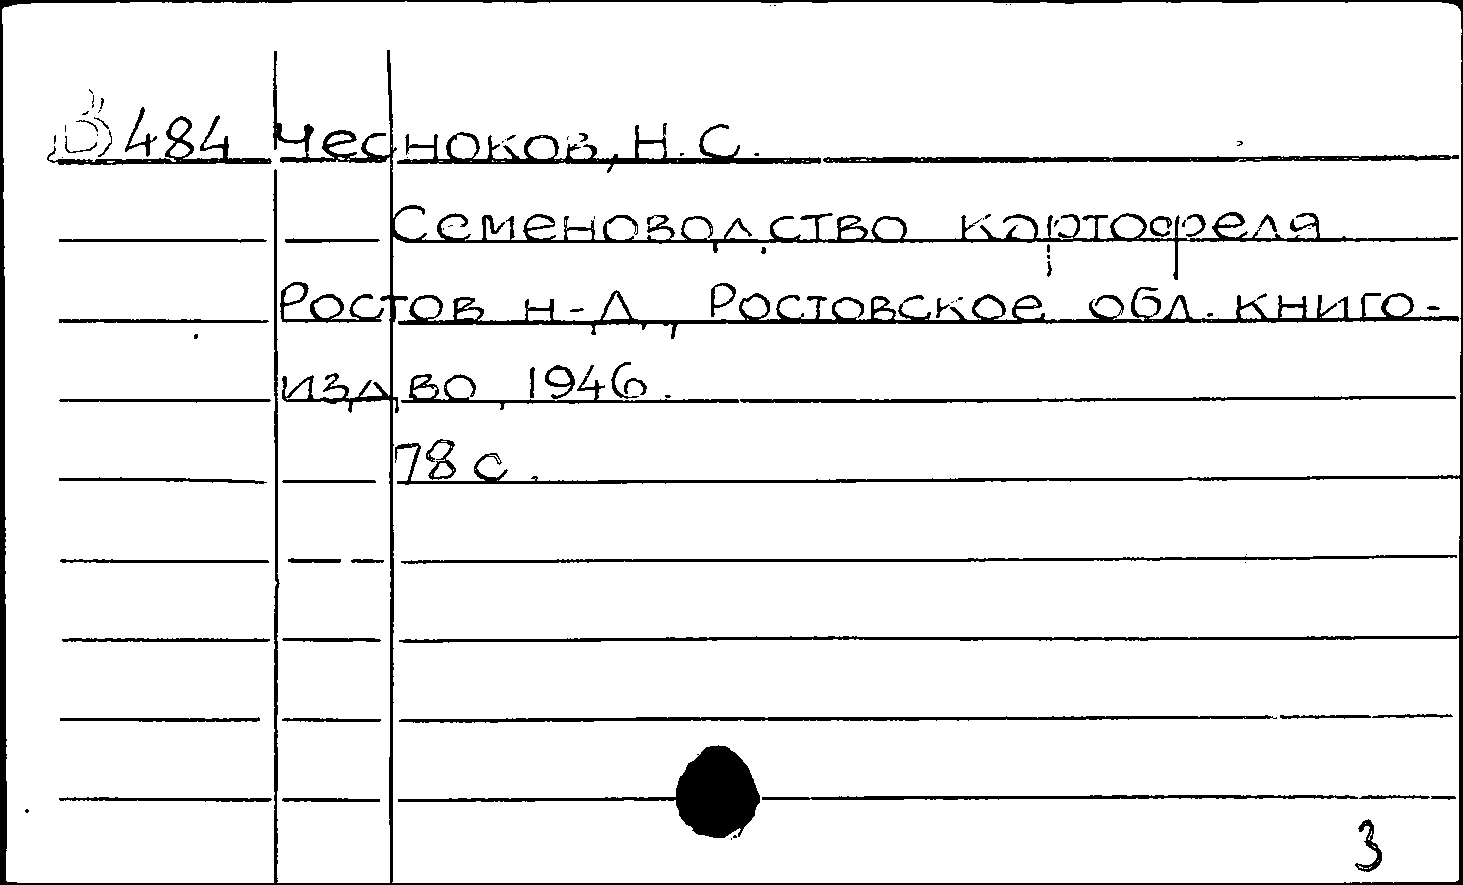 484 Чесноков, Н. С.
Семеноводство картофеля
Ростов н-Д, Ростовское обл. книго-
издво, 1946.
78 с.
3